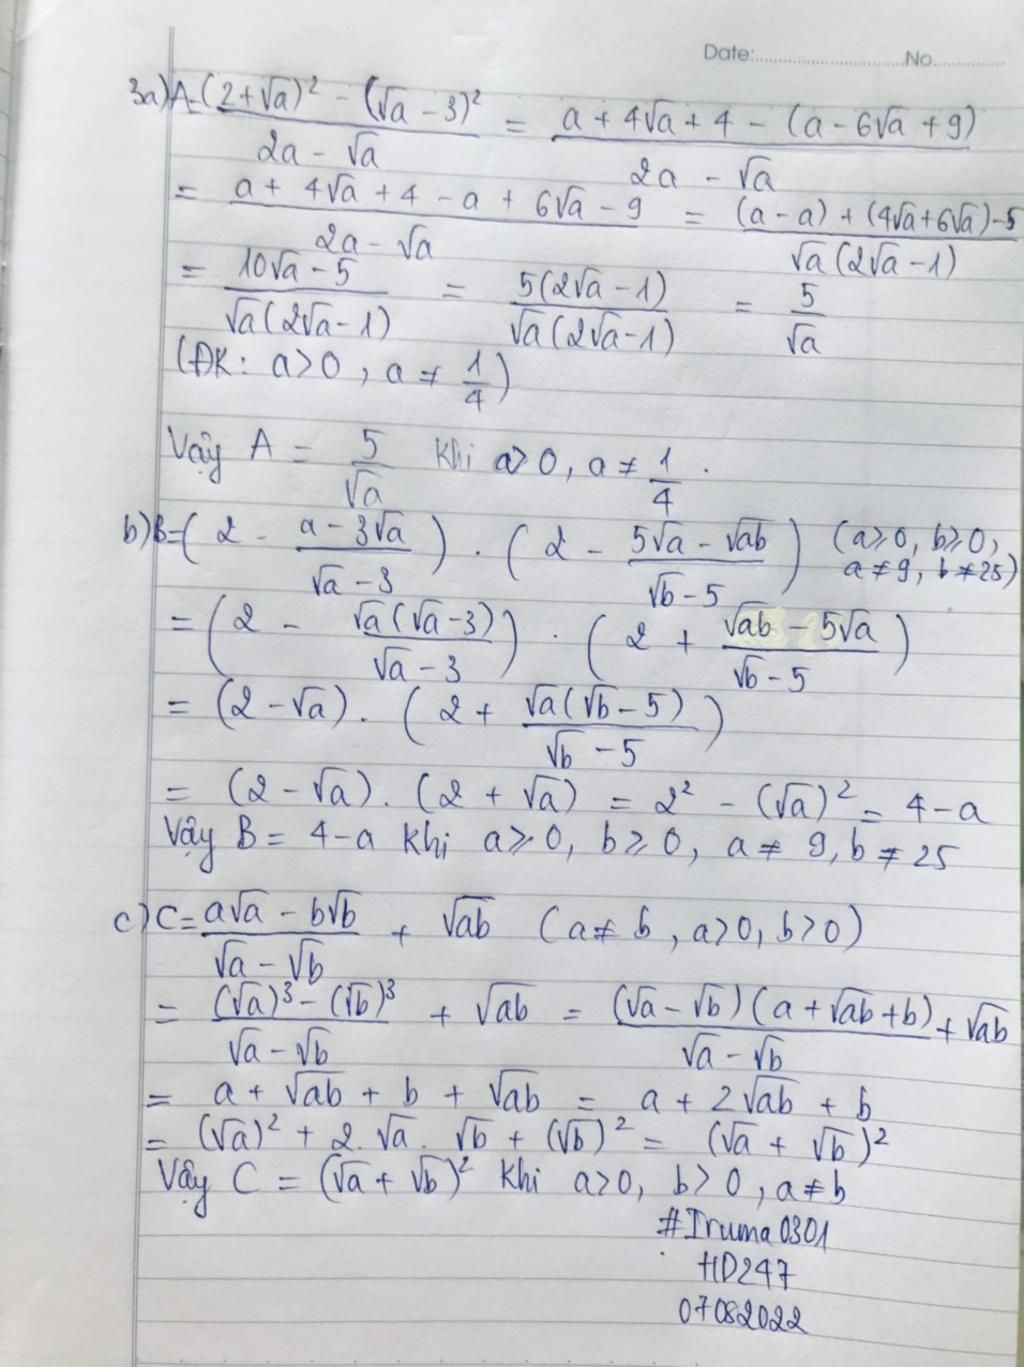 Date:..............................No..............
3a) A = ((2+√a)² - (√a - 3)²)/(2a - √a) = (a + 4√a + 4 - (a - 6√a + 9))/(2a - √a)
= (a + 4√a + 4 - a + 6√a - 9)/(2a - √a) = ((a - a) + (4√a + 6√a) - 5)/(√a(2√a - 1))
= (10√a - 5)/(√a(2√a - 1)) = (5(2√a - 1))/(√a(2√a - 1)) = 5/√a
(ĐK: a > 0, a ≠ 1/4)
Vậy A = 5/√a khi a > 0, a ≠ 1/4.
b) B = (2 - (a - 3√a)/(√a - 3)) . (2 - (5√a - √ab)/(√b - 5)) (a ≥ 0, b ≥ 0,
a ≠ 9, b ≠ 25)
= (2 - (√a(√a - 3))/(√a - 3)) . (2 + (√ab - 5√a)/(√b - 5))
= (2 - √a) . (2 + (√a(√b - 5))/(√b - 5))
= (2 - √a) . (2 + √a) = 2² - (√a)² = 4 - a
Vậy B = 4 - a khi a ≥ 0, b ≥ 0, a ≠ 9, b ≠ 25
c) C = (a√a - b√b)/(√a - √b) + √ab (a ≠ b, a > 0, b > 0)
= ((√a)³ - (√b)³)/(√a - √b) + √ab = ((√a - √b)(a + √ab + b))/(√a - √b) + √ab
= a + √ab + b + √ab = a + 2√ab + b
= (√a)² + 2.√a.√b + (√b)² = (√a + √b)²
Vậy C = (√a + √b)² khi a > 0, b > 0, a ≠ b
#Iruma0301
HD247
07082022